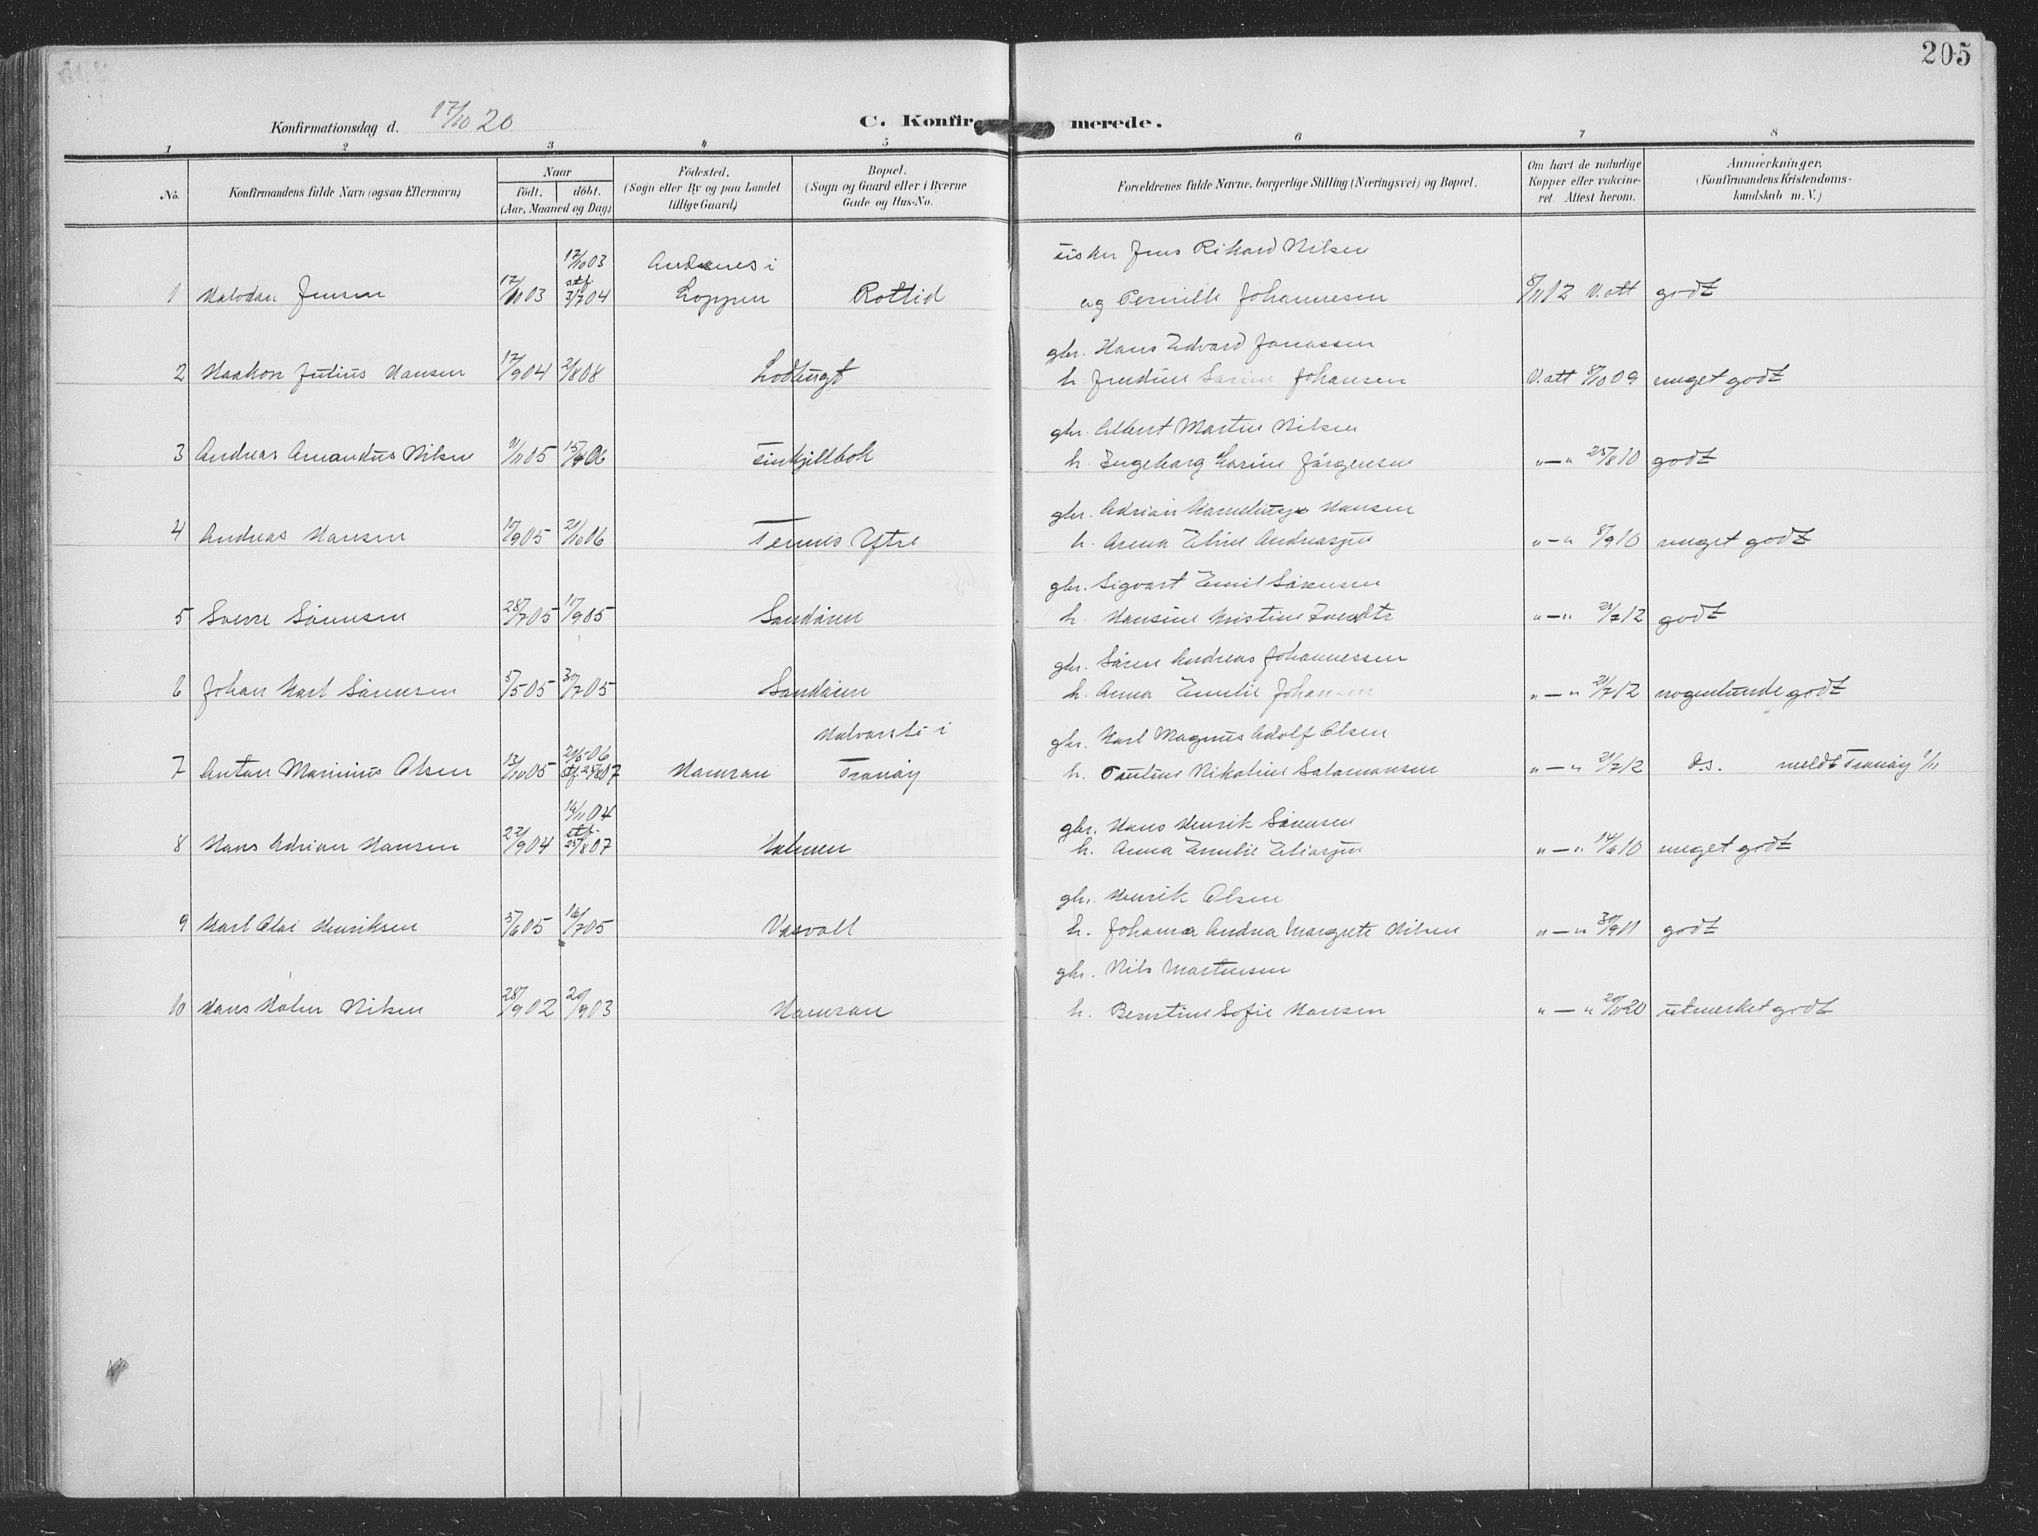 205
Konfirmationsdag d. 17/10 20
C. Konfirmerede.
1 2 3 4 5 6 7 8
No.
Konfirmandens fulde Navn (ogsaa Efternavn)
Naar
födt. döbt.
(Aar, Maaned og Dag)
Födested.
(Sogn eller By og paa Landet
tillige Gaard)
Bopæl.
(Sogn og Gaard eller i Byerne
Gade og Hus-No.
Forældrenes fulde Navne, borgerlige Stilling (Næringsvei) og Bopæl.
Om havt de naturlige
Kopper eller vakcine-
ret. Attest herom.
Anmerkninger.
(Konfirmandens Kristendoms-
kundskab m. V.)
17/10 03 Andsnes i fisker Jens Rikard Nilsen
1 Halvdan Jensen 17/ 03 stf. 3/7 04 Loppen Rotlid og Pernille Johannesen 8/11 12 V. att godt
gbr. Hans Edvard Jonassen
2 Haakon Julius Hansen 17/9 04 2/8 08 Lodbugt h. Sarine Johansen V. att 8/10 09 meget godt
gbr. Albert Martin Nilsen
3 Andreas Amandus Nilsen 9/11 05 15/4 06 Finkjellbok h. Ingeborg Larine Jörgensen " — " 25/8 10 godt
gbr. Adrian Hansen
4 Andreas Hansen 15/9 05 21/10 06 Tennes Ytre h. Arena Eline Andreasen " — " 8/9 10 meget godt
gbr. Sigvart Emil Sörensen
5 Sverre Sörensen 28/7 05 17/9 05 Sandören h. Hansine Kristine " — " 21/7 12 godt
gbr. Sören Andreas Johannessen
6 Johan Karl Sörensen 5/5 05 30/7 05 Sandören h. Anna Emelie Johansen " — " 21/7 12 nogenlunde godt
Halvarsti i gbr. Karl Magnus Adolf Olsen
7 Anton Marinius Olsen 13/10 05 20/5 06 stf. 25/8 07 Hamran Tranöy h. Pauline Nikoline Salamonsen " — " 21/7 12 d.s. meldt Tranöy 9/11
16/11 04 gbr. Hans Henrik Sörensen
8 Hans Adrian Hansen 22/9 04 stf. 25/8 07 Holmen h. Anna Emelie Eliasen " — " 14/6 10 meget godt
gbr. Henrik Olsen
9 Karl Olai Henriksen 5/6 05 16/7 05 Vasvoll h. Johanna Andrea Margrete Nilsen " — " 30/9 11 godt
gbr. Nils Martensen
10 Hans Holm Nilsen 28/9 02 20/9 03 Hamran h. Berntine Sofie Hansen " — " 20/10 20 utmerket godt